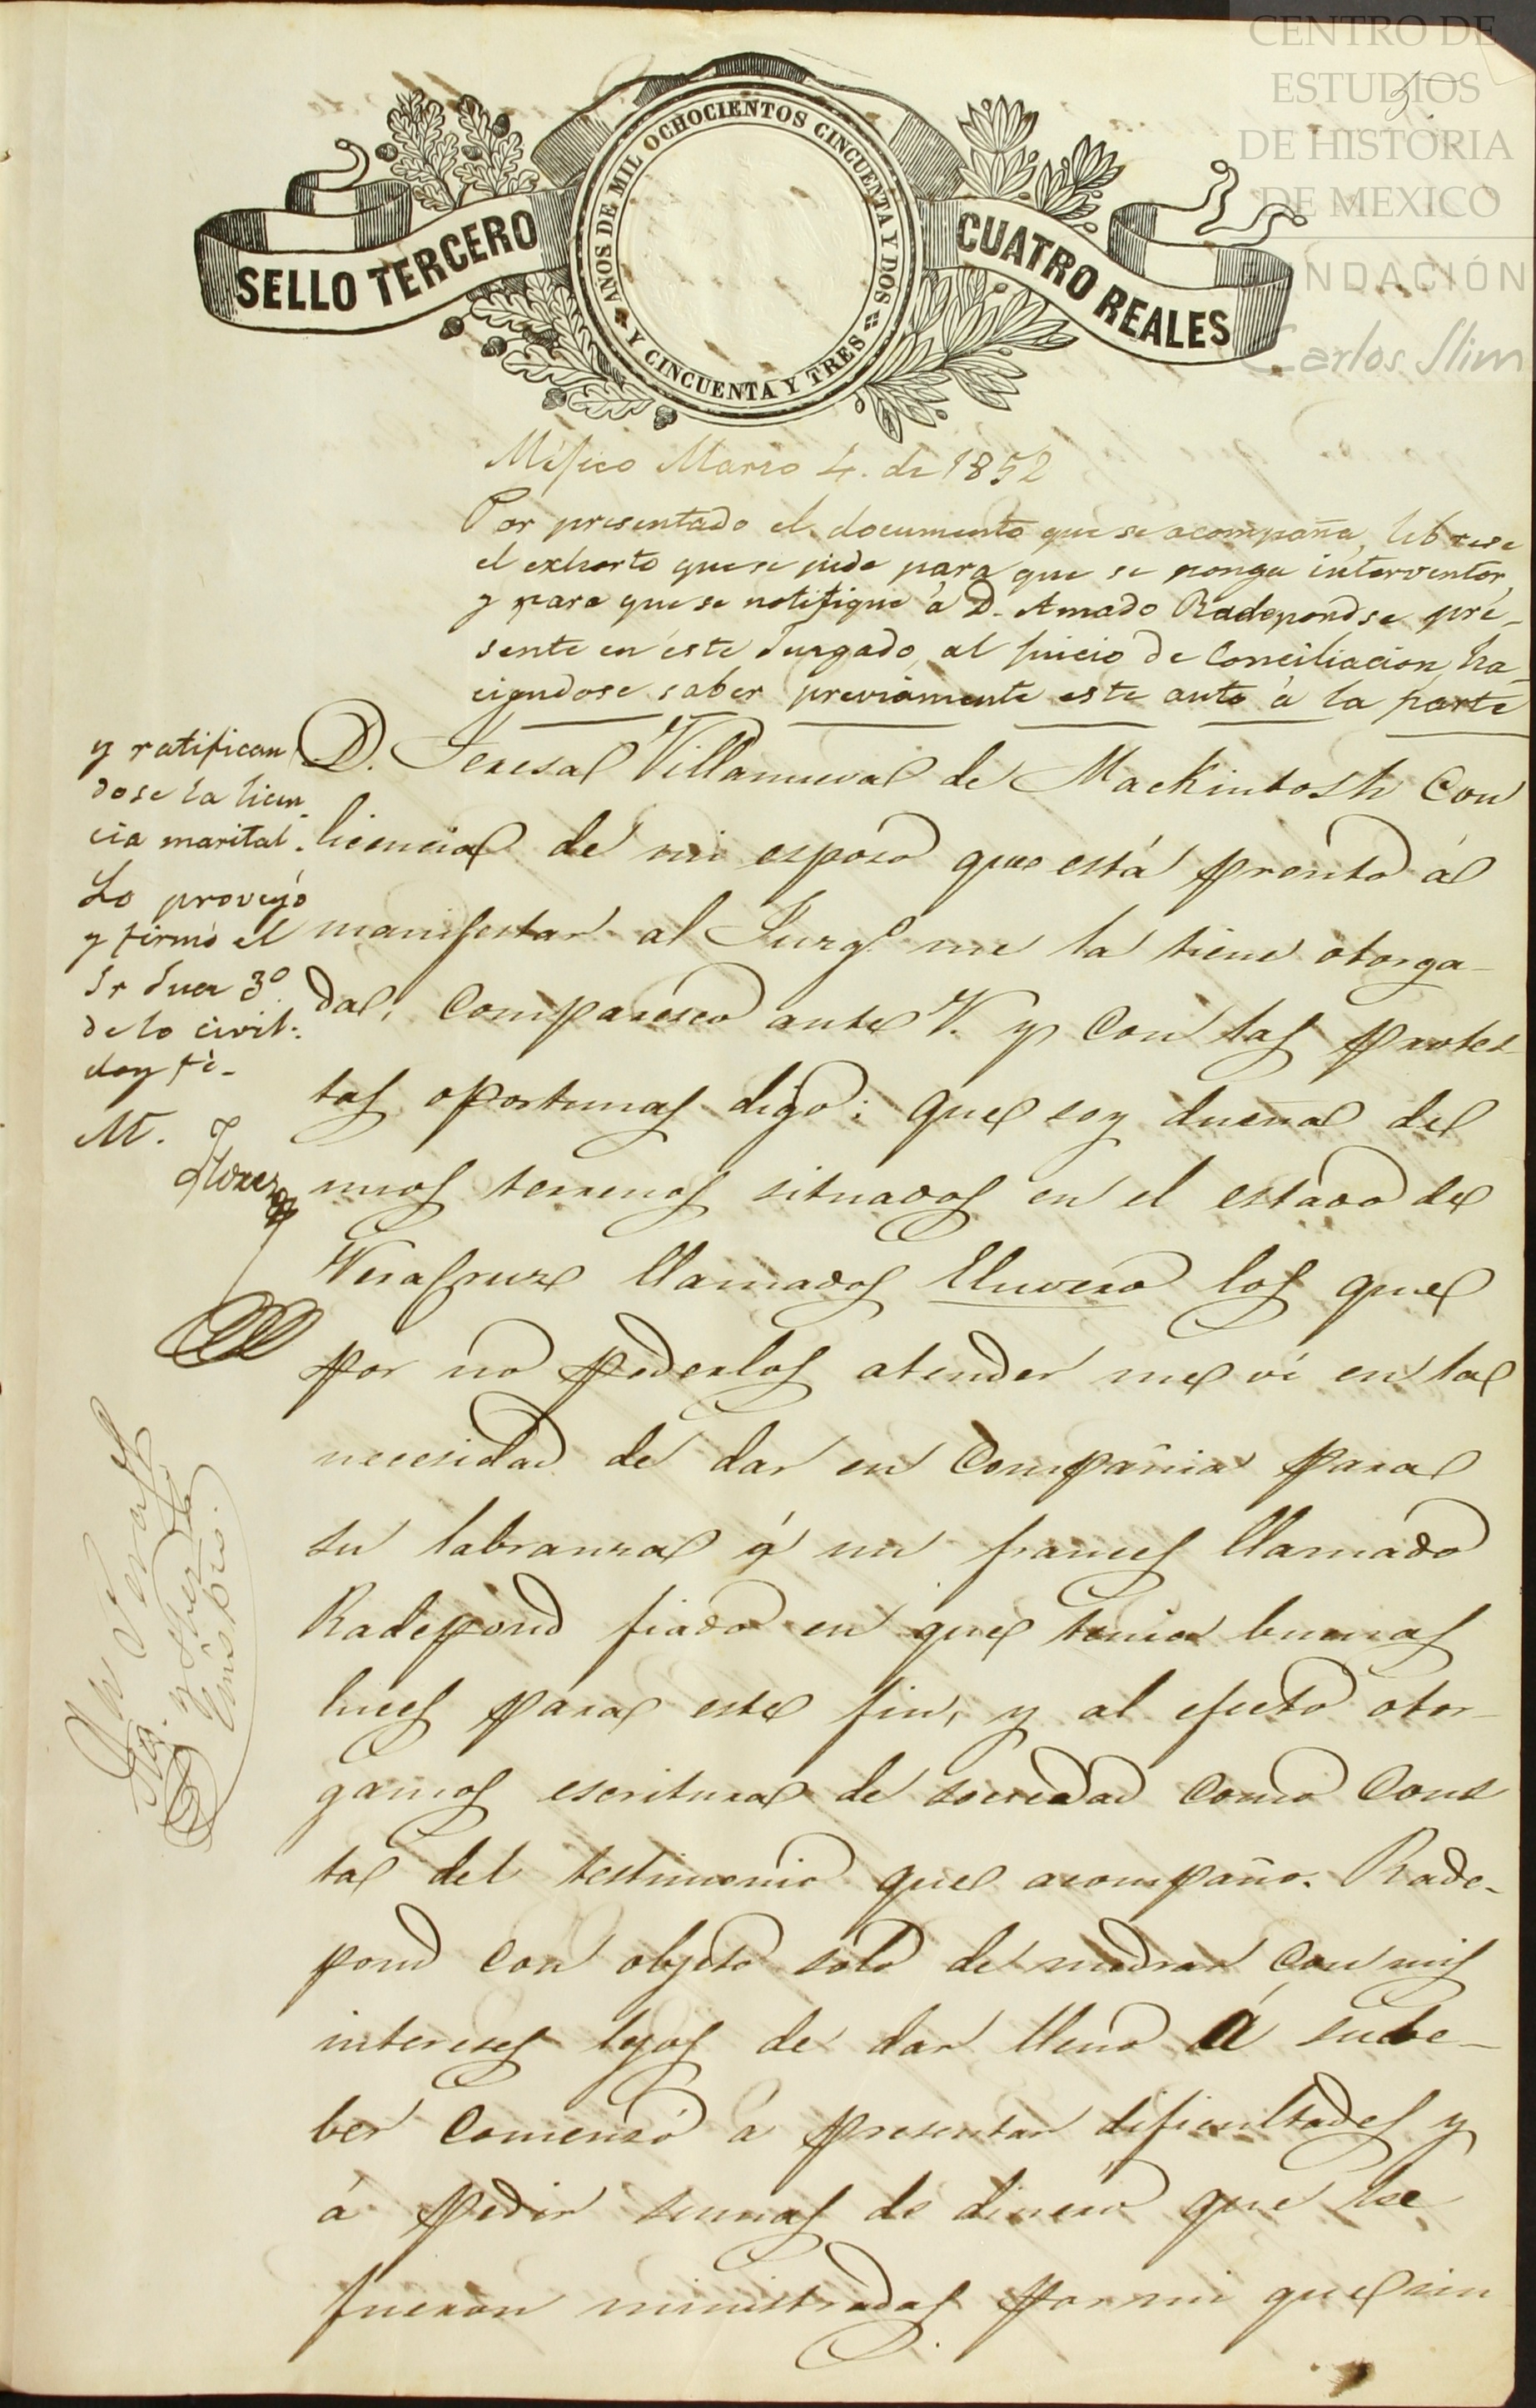 CENTRO DE
ESTUDIOS
DE HISTORIA
DE MEXICO
FUNDACIÓN
Carlos Slim
3
SELLO TERCERO
AÑOS DE MIL OCHOCIENTOS CINCUENTA Y DOS
Y CINCUENTA Y TRES
CUATRO REALES
Méjico Marzo 4. de 1852
Por presentado el documento que se acompaña, librese
el exhorto que se pide para que se ponga interventor,
y para que se notifique á D. Amado Radepond se pre-
sente en éste Juzgado, al juicio de conciliacion, ha-
ciendose saber previamente este auto á la parte
y ratifican
dose la licen
cia marital.
Lo proveyó
y firmó el
Sr Juez 3º
de lo civil:
doy fé-
M.
Flores
D. Teresa Villanueva de Mackintosh con
licencia de mi esposo que está pronto á
manifestar al Juzgº me la tiene otorga-
da; comparesco ante V. y con las protes
tas oportunas digo: que soy dueña de
unos terrenos situados en el estado de
Veracruz llamados Eluvero los que
por no poderlos atender me ví en la
necesidad de dar en compañia para
su labranza á un frances llamado
Radepond fiado en que tenia buenas
luces para este fin, y al efecto otor-
gamos escritura de sociedad como cons
ta del testimonio que acompaño. Rade-
pond con objeto solo de medrar con mis
intereses lejos de dar lleno á su de-
ber comenzó á presentar dificultades y
á pedir sumas de dinero que le
fueron ministradas por mi que sin